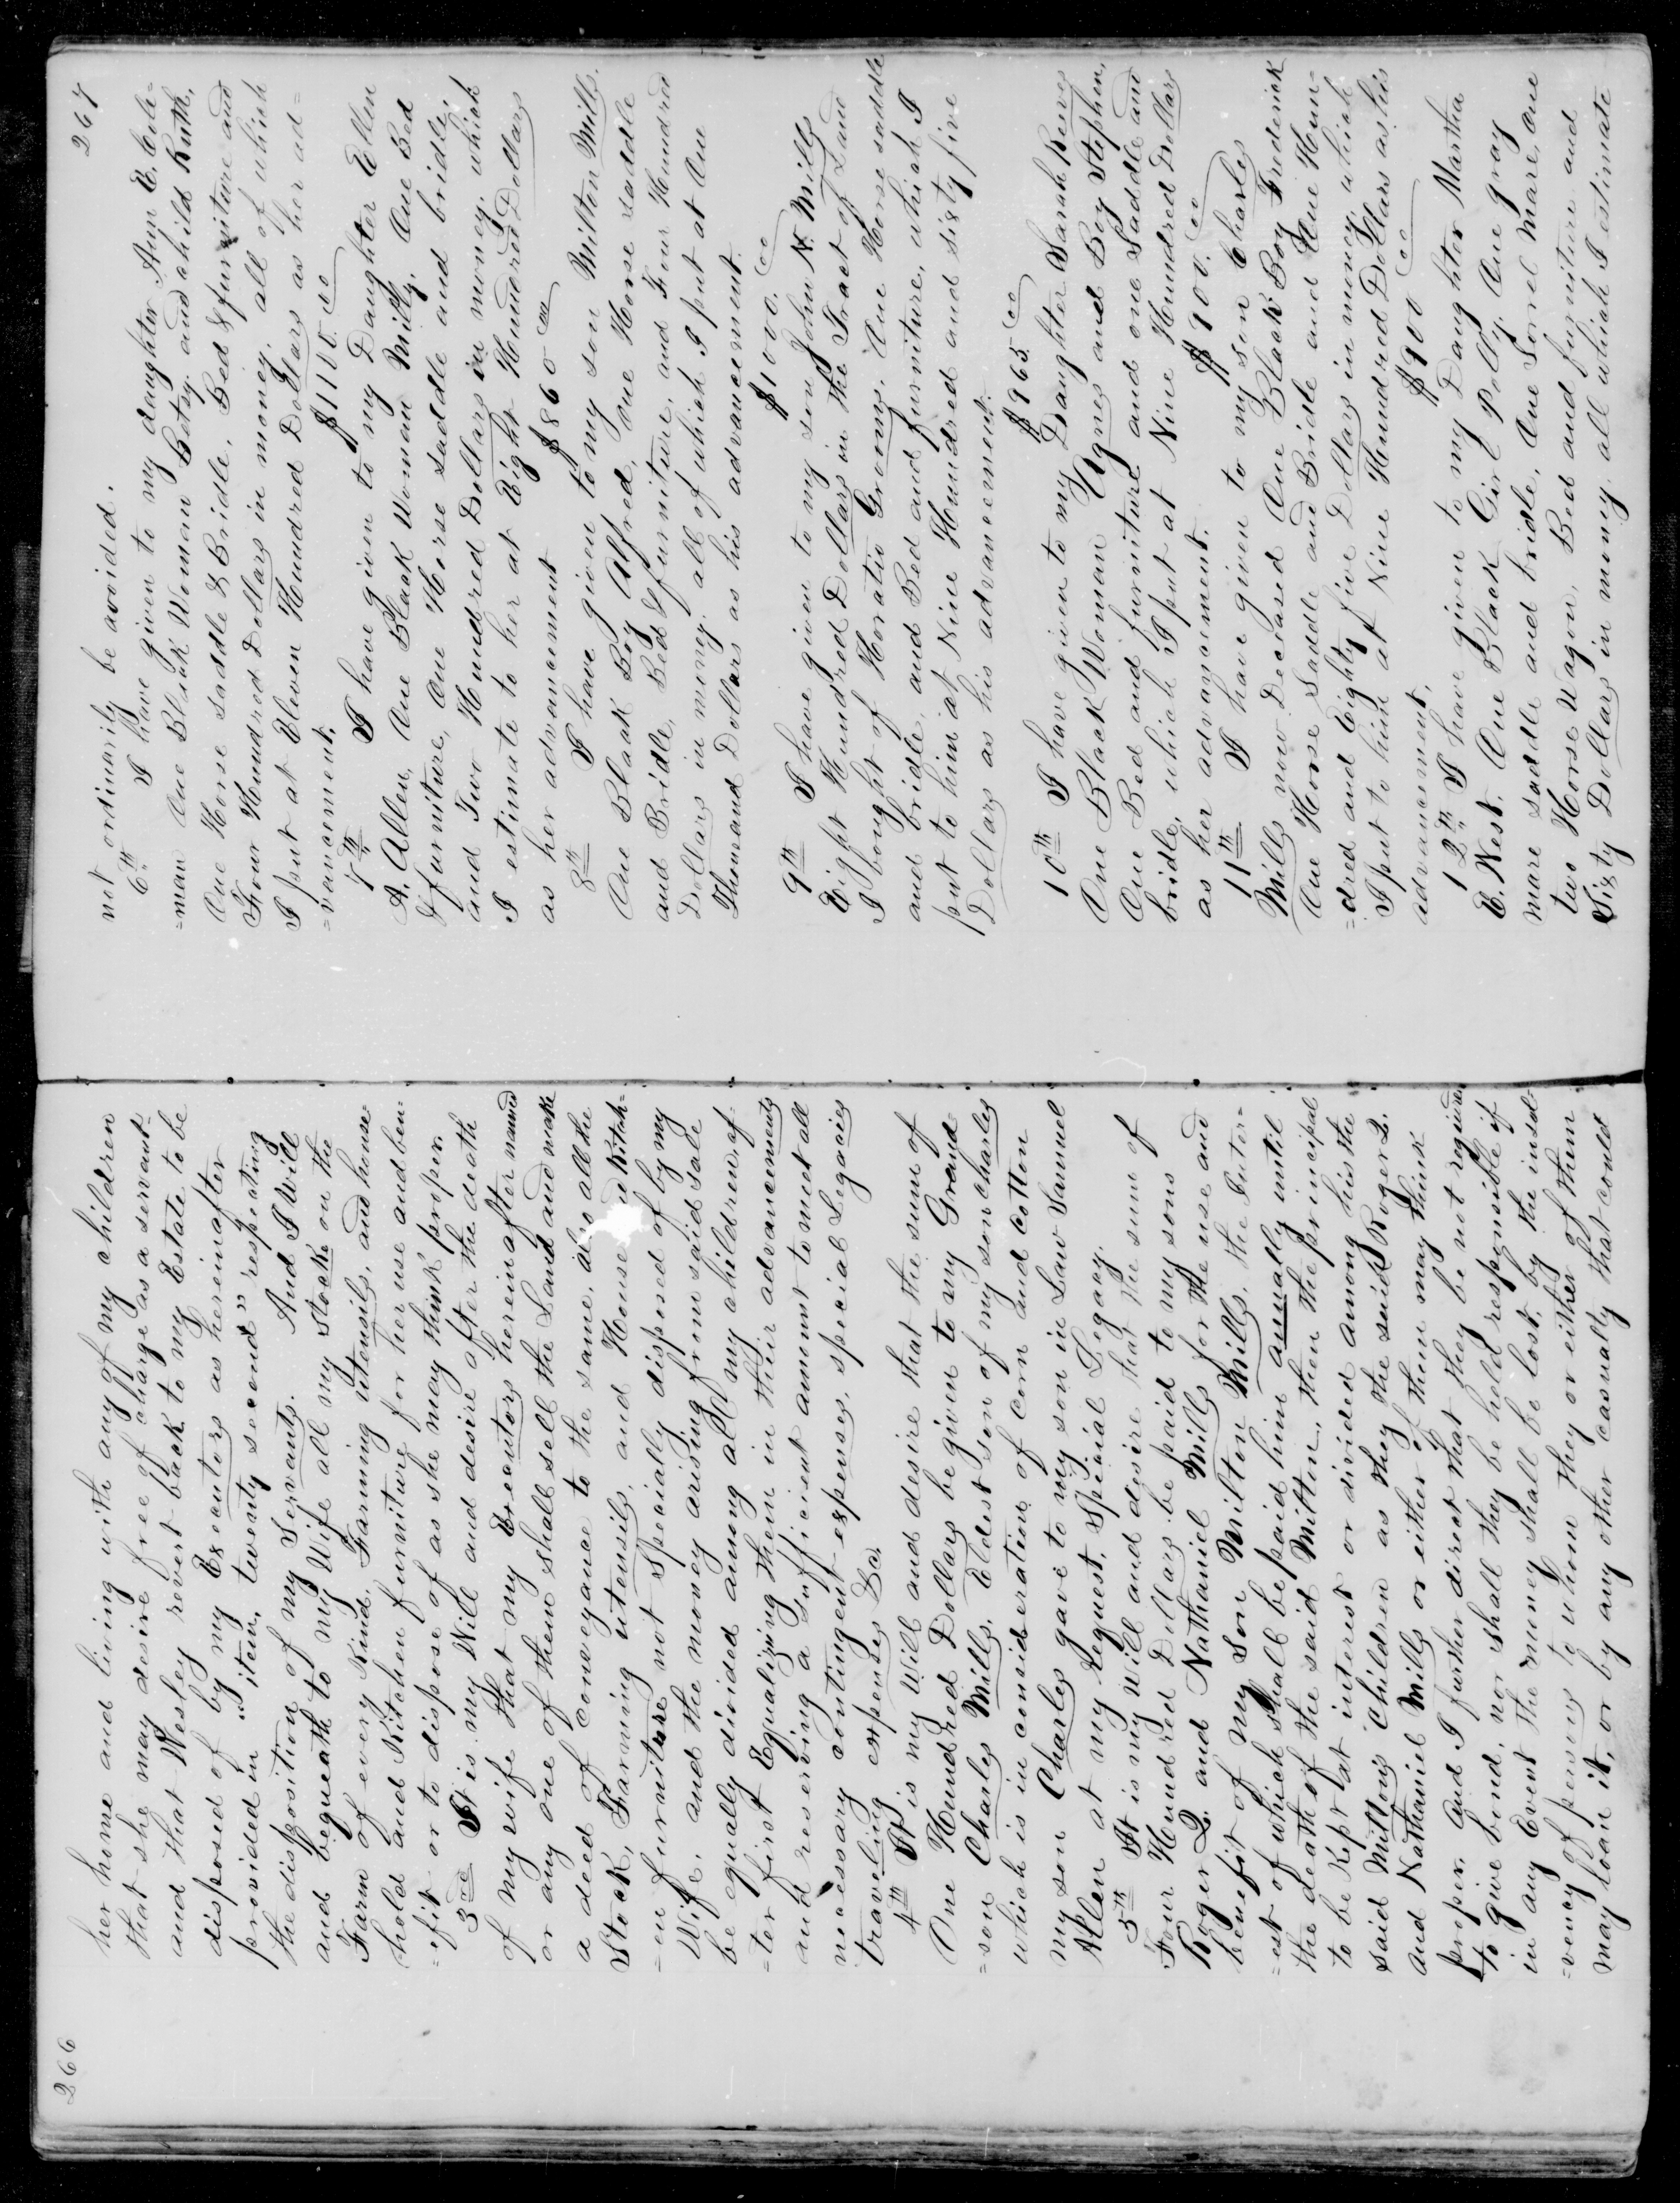 266
her home and living with any of my children
that she may desire free of charge as a servant-
and that Wesley revert back to my Estate to be
disposed of by my Executors as hereinafter
provided in "item, twenty second" respecting
the disposition of my Servants. And I Will
and bequeath to my Wife all my stock on the
Farm of every Kind. Farming utensils, and house-
hold and Kitchen furniture for her use and ben-
=efit or to dispose of as she may think proper.
3rd It is my Will and desire after the death
of my wife that my Executors hereinafter named
or any one of them shall sell the Land and make
a deed of conveyance to the same, also all the
Stock, Farming utensils, and House Kitch-
=en furniture not specially disposed of by my
Wife, and the money arising from said sale
be equally divided among all my children, af-
=ter first Equalizing them in their advancements
and reserving a sufficient amount to meet all
necessary contingent expenses, special Legacies
traveling expenses &c.
4th It is my Will and desire that the sum of
One Hundred Dollars be given to my Grand
=son Charles Mills, Eldest son of my son Charles
which is in consideration of corn and cotton
my son Charles gave to my son in Law Samuel
Allen at my request, Special Legacy.
5th It is my Will and desire that the sum of
Four Hundred Dollars be paid to my sons
Roger Q. and Nathaniel Mills for the use and
benefit of my Son Milton Mills, the Inter-
=est of which shall be paid him annually until
the death of the said Milton, then the principal
to be Kept at interest or divided among his the
said Miltons Children as they the said Roger Q.
and Nathaniel Mills or either of them may think
proper. And I further direct that they be not required
to give bond, nor shall they be held responsible if
in any Event the money shall be lost, by the insol-
=vency of persons to whom they or either of them
may loan it, or by any other casualty that could
267
not ordinarily be avoided.
6th I have given to my daughter Ann E. Cole-
=man One Black Woman Betsy. and child Ruth,
One Horse saddle & Bridle, Bed & furniture and
Four Hundred Dollars in money. all of which
I put at Eleven Hundred Dollars as her ad-
=vancement. $1100.00
7th I have given to my Daughter Ellen
A. Allen, One Black Woman Milly. One Bed
& furniture, One Horse saddle and bridle,
and Two Hundred Dollars in money. which
I estimate to her at Eight Hundred Dollars
as her advancement $860 00
8th I have given to my son Milton Mills.
One Black Boy Alfred, One Horse saddle
and Bridle, Bed & furniture, and Four Hundred
Dollars in money. all of which I put at One
Thousand Dollars as his advancement.
$1000.00
9th I have given to my son John N. Mills
Eight Hundred Dollars in the Tract of Land
I bought of Horatio Grooms. One Horse saddle
and bridle, and Bed and furniture, which I
put to him at Nine Hundred and sixty five
Dollars as his advancement.
$965.00
10th I have given to my Daughter Sarah Reeves
One Black Woman Agnes and Boy Stephen,
One Bed and furniture and one Saddle and
bridle, which I put at Nine Hundred Dollars
as her advancement. $900.00
11th I have given to my son Charles
Mills now Deceased One Black Boy Frederick
One Horse Saddle and Bridle and One Hun-
=dred and Eighty five Dollars in money. which
I put to him at Nine Hundred Dollars as his
advancement. $900 00
12th I have given to my Daughter Martha
E. West. One Black Girl Polly. One gray
mare saddle and bridle, One Sorrel mare, One
two Horse Wagon. Bed and furniture and
Sixty Dollars in money. all which I estimate